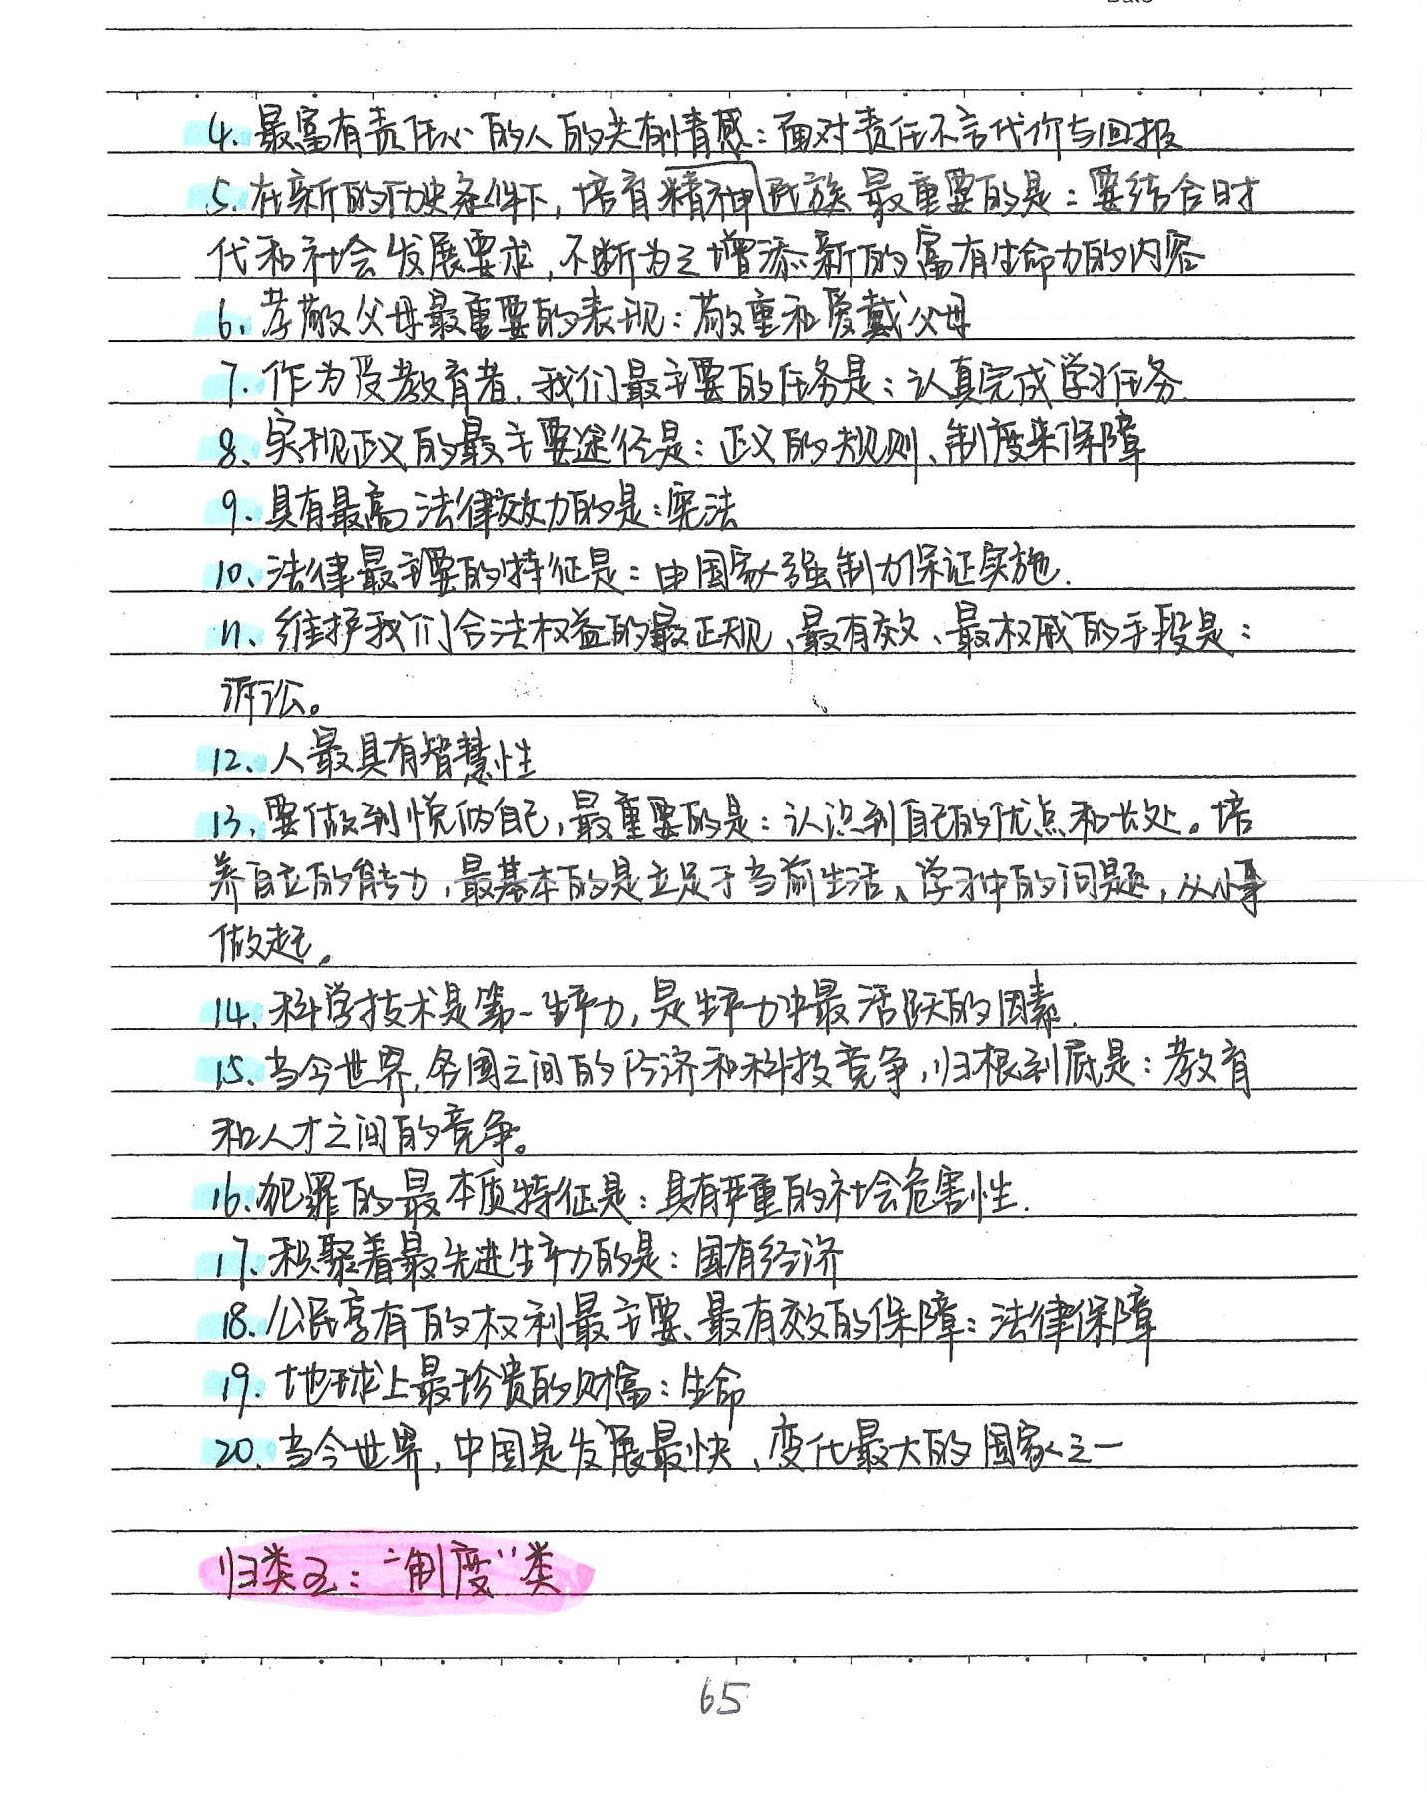 4、最富有责任心的人的共有情感：面对责任不言代价与回报
5、在新的历史条件下，培育精神民族最重要的是：要结合时
代和社会发展要求，不断为之增添新的富有生命力的内容
6、孝敬父母最重要的表现：敬重和爱戴父母
7、作为受教育者，我们最主要的任务是：认真完成学习任务.
8、实现正义的最主要途径是：正义的规则、制度来保障
9、具有最高法律效力的是：宪法
10、法律最主要的特征是：由国家强制力保证实施.
11、维护我们合法权益的最正规、最有效、最权威的手段是：
诉讼。
12、人最具有智慧性
13、要做到悦纳自己，最重要的是：认识到自己的优点和长处。培
养自立的能力，最基本的是立足于当前生活、学习中的问题，从小事
做起。
14、科学技术是第一生产力，是生产力中最活跃的因素.
15、当今世界，各国之间的经济和科技竞争，归根到底是：教育
和人才之间的竞争。
16、犯罪的最本质特征是：具有严重的社会危害性.
17、积聚着最先进生产力的是：国有经济
18、公民享有的权利最主要、最有效的保障：法律保障
19、地球上最珍贵的财富：生命
20、当今世界，中国是发展最快、变化最大的国家之一
归类：“制度”类
65